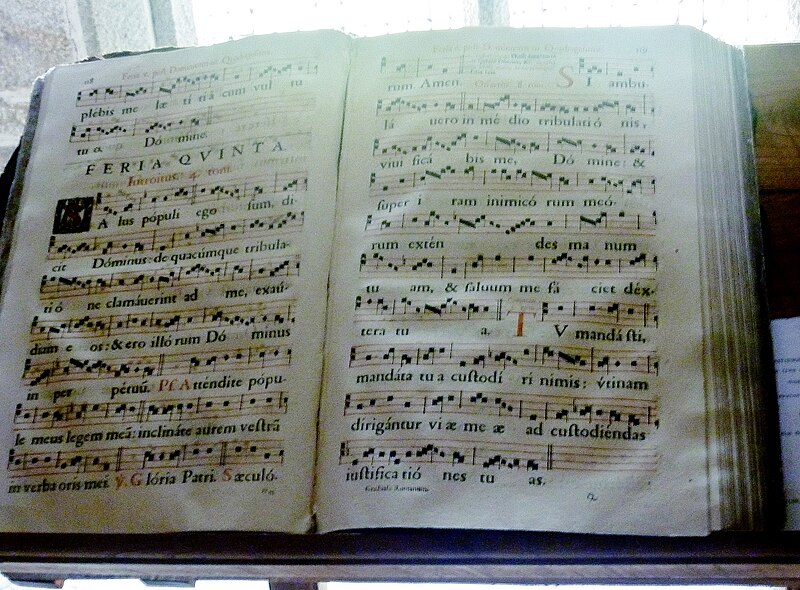 plebis me læ ti tiā cum vul tu
tu o. Dó mine.
FERIA QVINTA
Introitus. 4. toni.
A lus pópuli ego sum, di-
cit Dóminus: de quacúmque tribula-
ti ó ne clamáuerint ad me, exaú-
diam e os: & ero illó rum Dó minus
in per pétuū. Ps. Atténdite pópu-
le meus legem meā: inclináte aurem vestrā
in verba oris mei. ℣. Glória Patri. Sæculó-
rum Amen.
S I ambu
lá uero in mé dio tribulatió nis,
viui ficá bis me, Dó mine: &
super i ram inimicó rum meó-
rum extén des ma num
tu am, & saluum me fá ciet déx-
tera tu a. T V mandásti,
mandáta tu a custodí ri nimis: vtinam
dirigántur vi æ me æ ad custodiéndas
iustifica tió nes tu as.